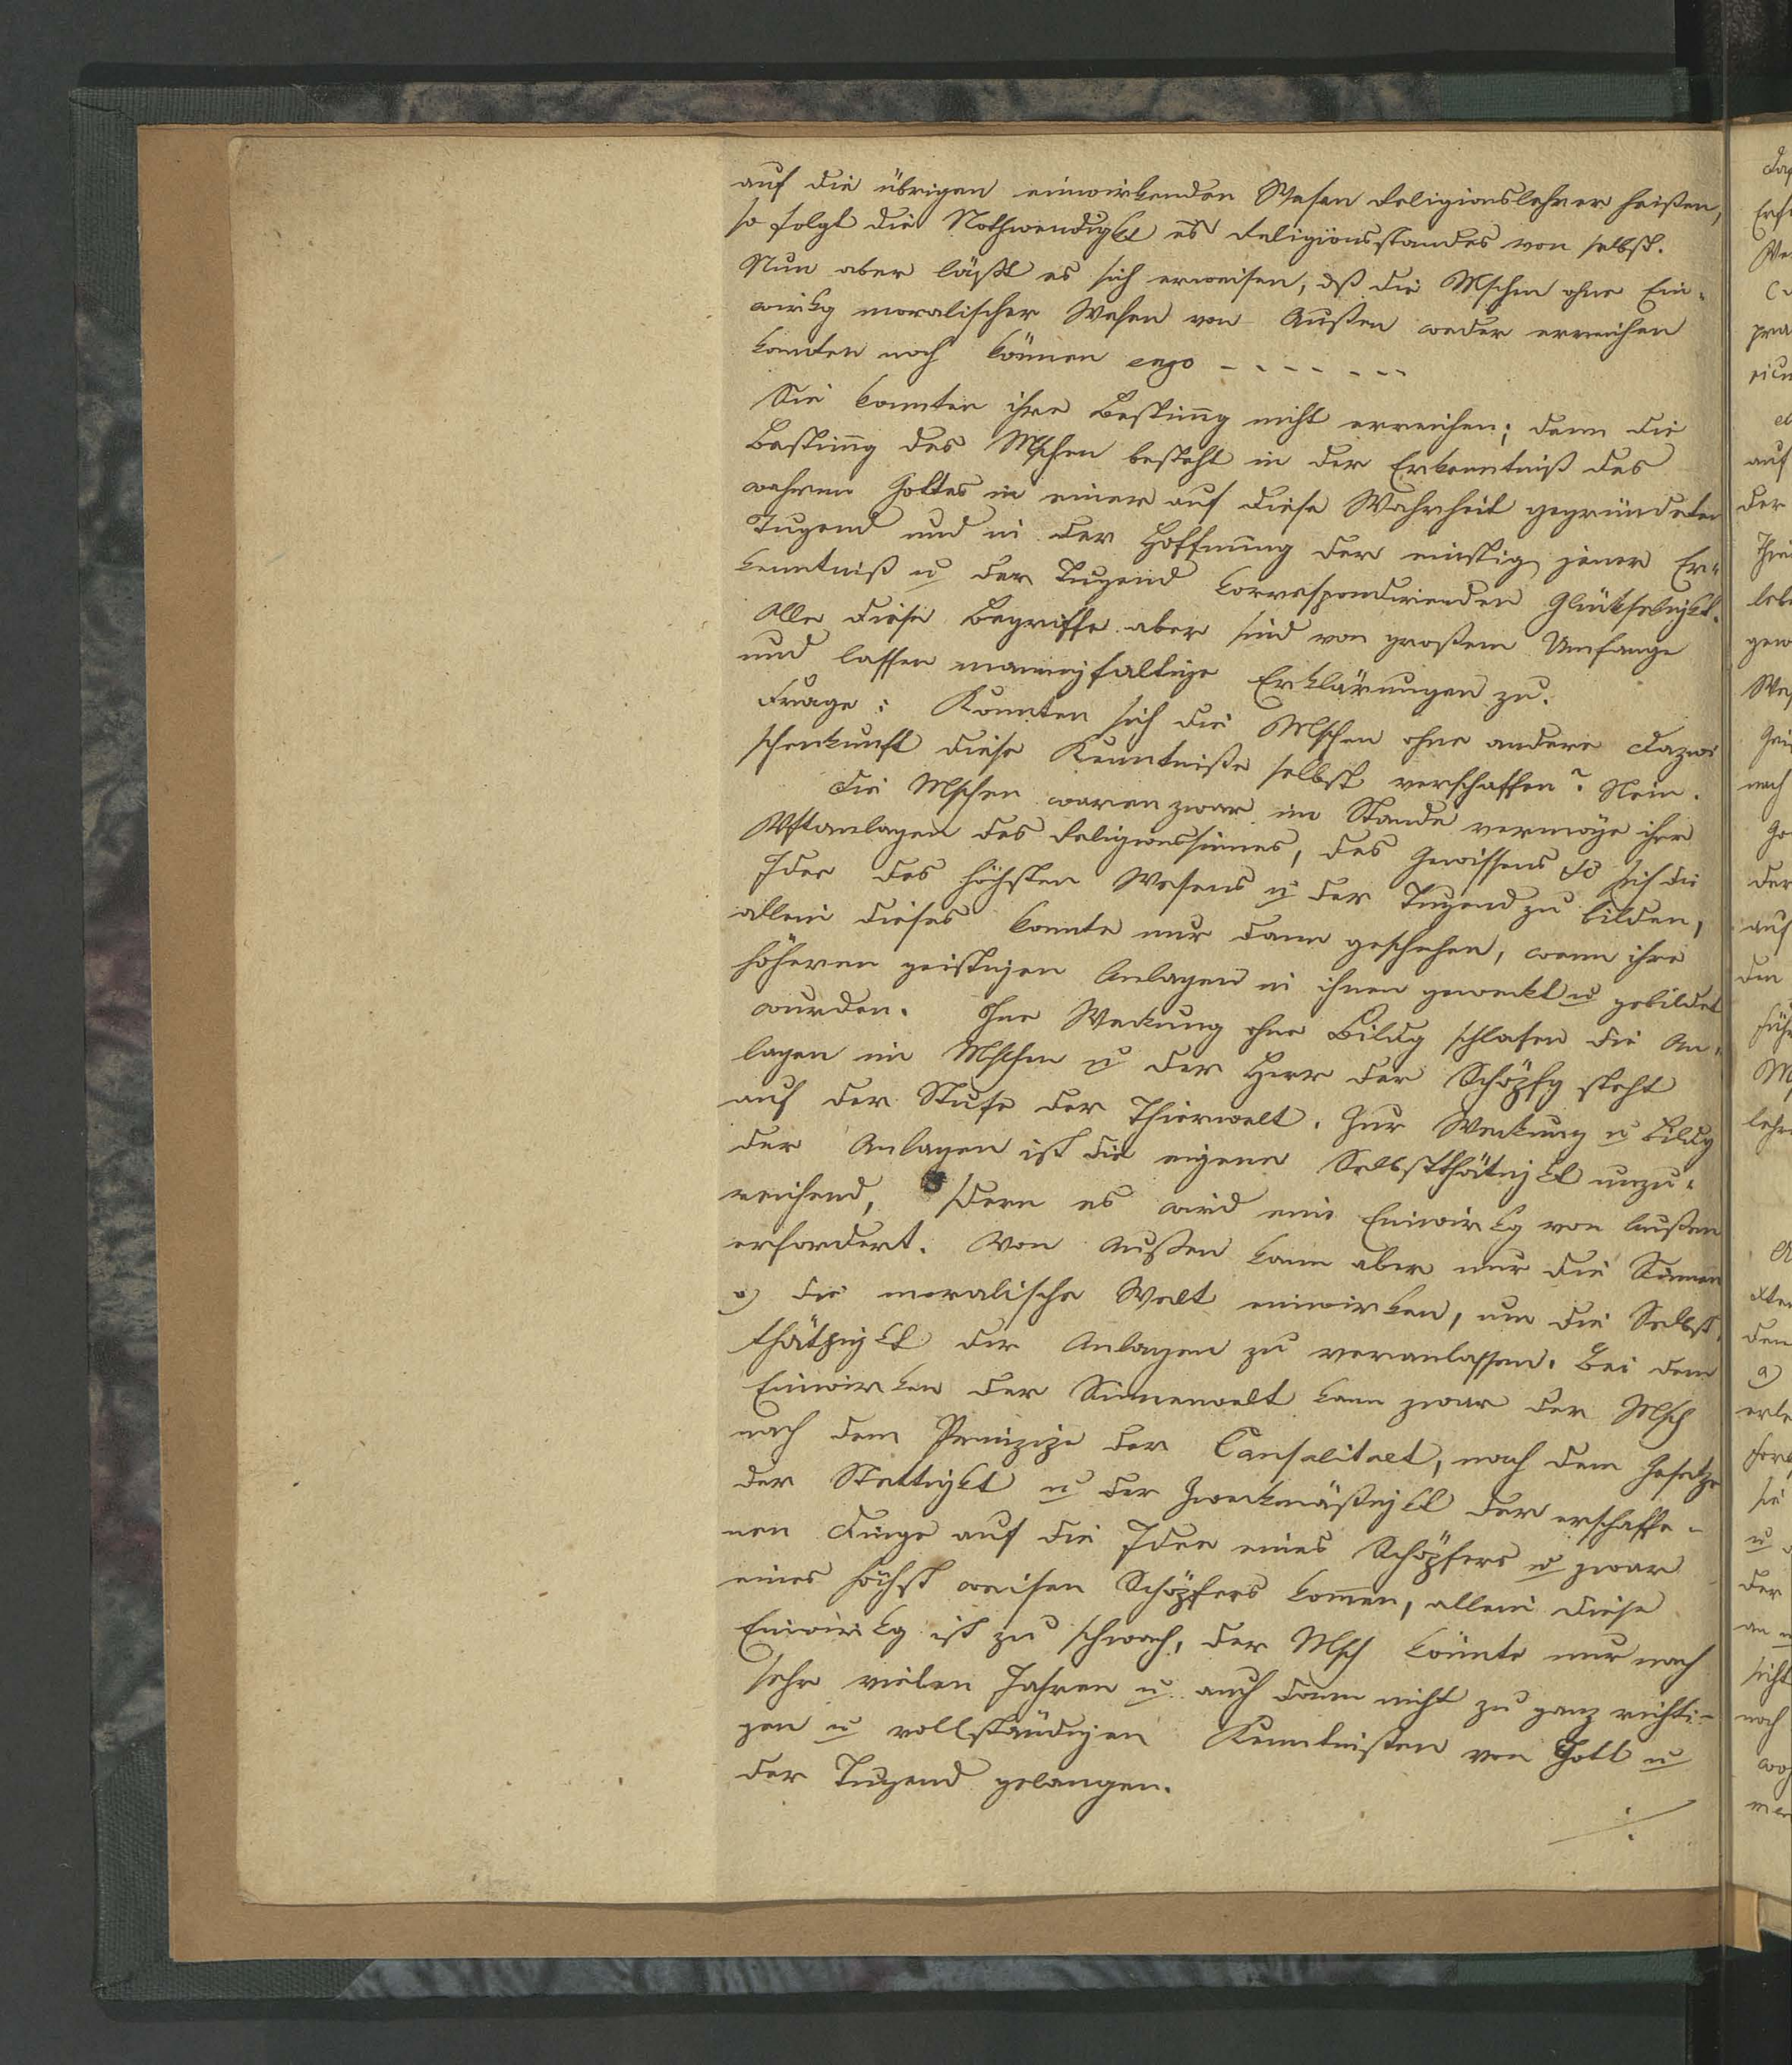 auf die übrigen einwirkenden Wesen Religionslehrer heißen,
so folgt die Nothwendigkt es Religionsstandes von selbst.
Nun aber läßt es sich erweisen, dß die Mschen ohne Ein-
wirkg moralischer Wesen von Außen weder erreichen
konnten noch können ergo - - - - - - -
Sie konnten ihre Bestim̄g nicht erreichen; denn die
Bestim̄g des Mschen besteht in der Erkenntniß des
wahren Gottes in einer auf diese Wahrheit gegründeten
Tugend und in der Hoffnung der einstig jener Er-
kenntniß u der Tugend korrespondirenden Glückseligkt.
Alle diese Begriffe aber sind von großem Umfange
und lassen mannigfaltige Erklärungen zu.
Frage: Konnten sich die Mschen ohne andere Dazwi
schenkunft diese Kenntniße selbst verschaffen? Nein.
Die Mschen waren zwar im Stande vermöge ihrer
Vftanlagen des Religionssinnes, des Gewissens sich die
Idee des höchsten Wesens u der Tugend zu bilden,
allein dieses konnte nur dann geschehen, wenn ihre
höheren geistigen Anlagen in ihnen geweckt u gebildet
wurden. Ohne Weckung ohne Bildg schlafen die An-
lagen im Mschen u der Herr der Schöpfg steht
auf der Stufe der Thierwelt. Zur Weckung u Bildg
der Anlagen ist die eigene Selbstthätigkt unzu-
reichend, sdern es wird eine Einwirkg von Außen
erfordert. Von Außen kann aber nur die Sinnen
u die moralische Welt einwirken, um die Selbst-
thätigkt der Anlagen zu veranlassen. Bei dem
Einwirken der Sinnenwelt kann zwar der Msch
nach dem Prinzipe der Causalitaet, nach dem Gesetze
der Stettigkt u der Zweckmäßigkt der erschaffe-
nen Dinge auf die Idee eines Schöpfers u zwar
eines höchst weisen Schöpfers kom̄en, allein diese
Einwirkg ist zu schwach, der Msch könnte nur nach
sehr vielen Jahren u auch dann nicht zu ganz richti-
gen u vollständigen Kenntnißen von Gott u
der Tugend gelangen.
./.